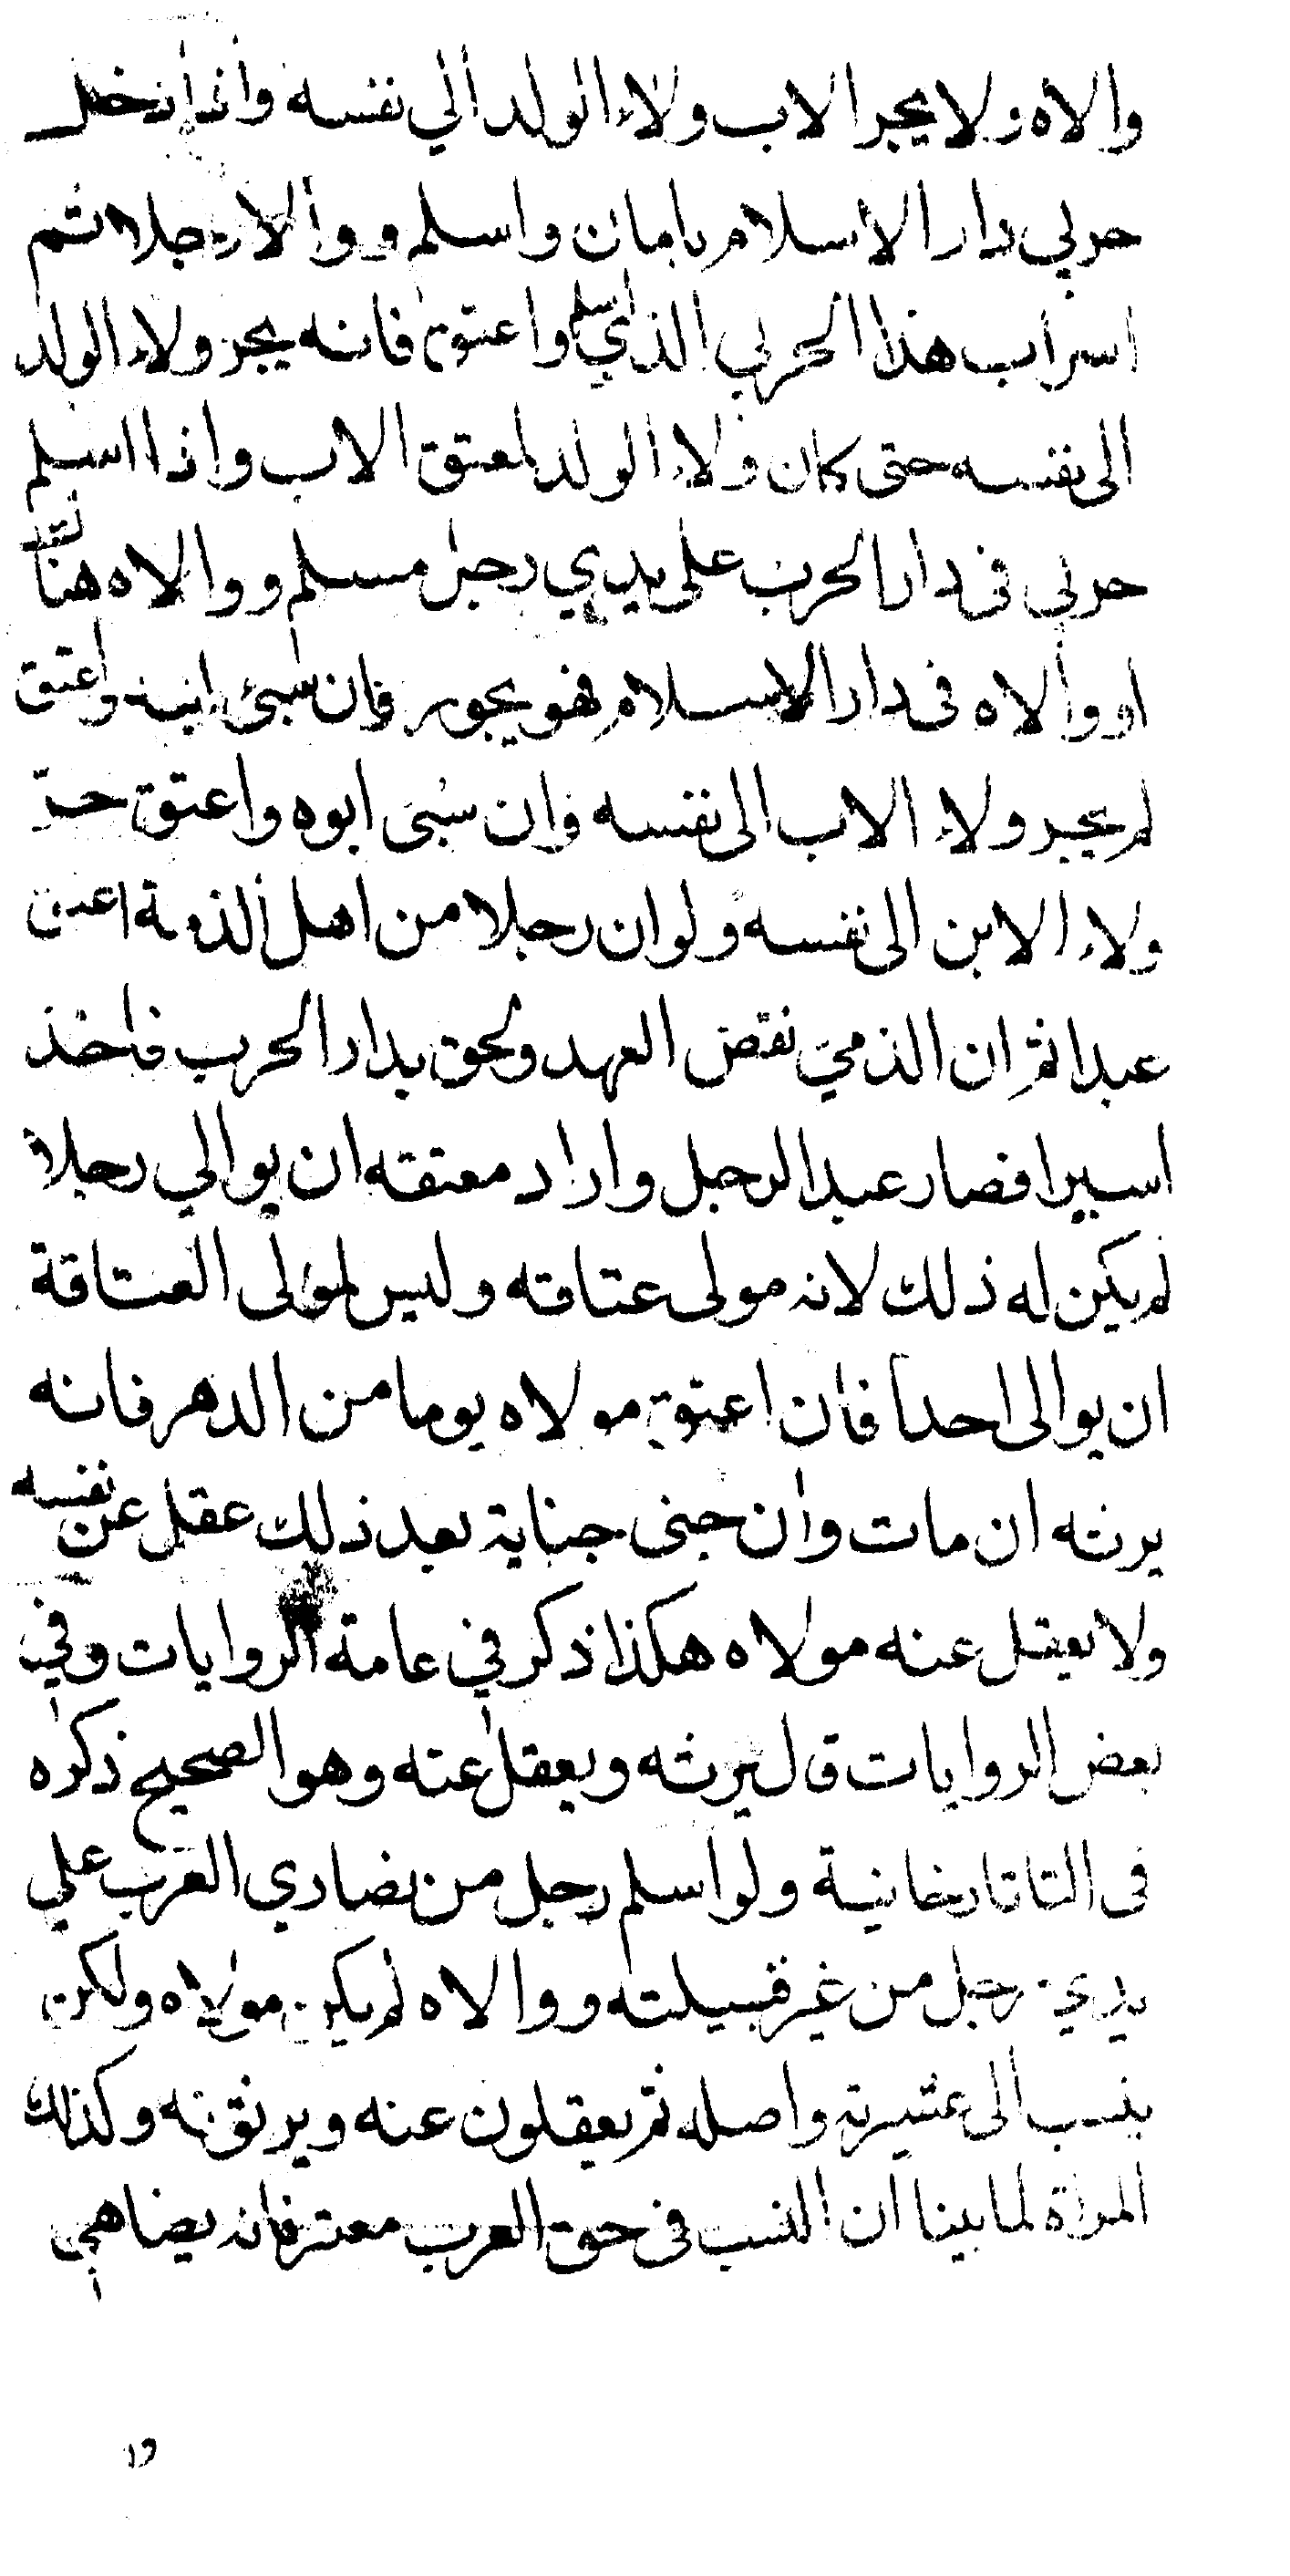 والاه ولا يجر الاب ولاء الولد الي نفسه واذا دخل
حربي دار الاسلام بامان واسلم ووالا رجلا ثم
اسر اب هذا الحربي الذي اسلم واعتق فانه يجر ولاء الولد
الى نفسه حتى كان ولاء الولد لمعتق الاب واذا اسلم
حربي فى دار الحرب على يدي رجل مسلم ووالاه هناك
او والاه فى دار الاسلام فهو يجوز فان سبئ ابنه واعتق
لم يجر ولاء الاب الى نفسه وان سبى ابوه واعتق جر
ولاء الابن الى نفسه ولو ان رجلا من اهل الذمة اعتق
عبدا ثم ان الذمي نقض العهد ولحق بدار الحرب فاخذ
اسيرا فصار عبدا لرجل واراد معتقه ان يوالي رجلا
لم يكن له ذلك لانه مولى عتاقه وليس لمولى العتاقة
ان يوالى احدا فان اعتق مولاه يوما من الدهر فانه
يرثه ان مات وان جنى جناية بعد ذلك عقل عن نفسه
ولا يعقل عنه مولاه هكذا ذكر في عامة الروايات وفي
بعض الروايات قال يرثه ويعقل عنه وهو الصحيح ذكره
فى التاتارخانية ولو اسلم رجل من نصاري العرب علي
يدي رجل من غير قبيلته ووالاه لم يكن مولاه ولكن
ينسب الى عشيرته واصله ثم يعقلون عنه ويرثونه وكذلك
المراة لما بينا ان النسب فى حق العرب معتبر فانه يضاهي